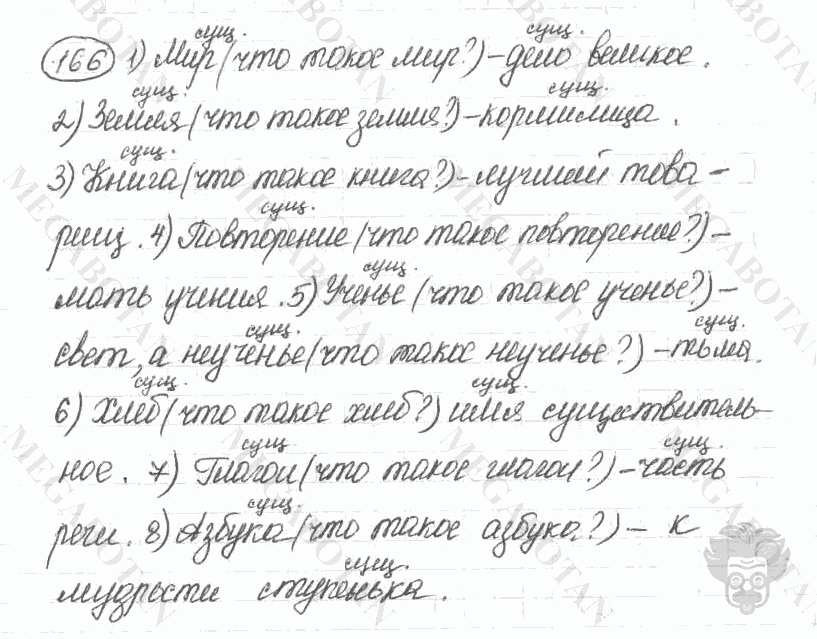 сущ. сущ.
166 1) Мир (что такое мир?) – дело великое.
сущ. сущ.
2) Земля (что такое земля?) – кормилица.
сущ.
3) Книга (что такое книга?) – лучший това-
сущ.
рищ. 4) Повторение (что такое повторение?) –
сущ.
мать учения. 5) Ученье (что такое ученье?) –
сущ. сущ.
свет, а неученье (что такое неученье?) – тьма.
сущ. сущ.
6) Хлеб (что такое хлеб?) имя существитель-
сущ. сущ.
ное. 7) Глагол (что такое глагол?) – часть
сущ.
речи. 8) Азбука (что такое азбука?) – к
сущ.
мудрости ступенька.
MEGABOTAN